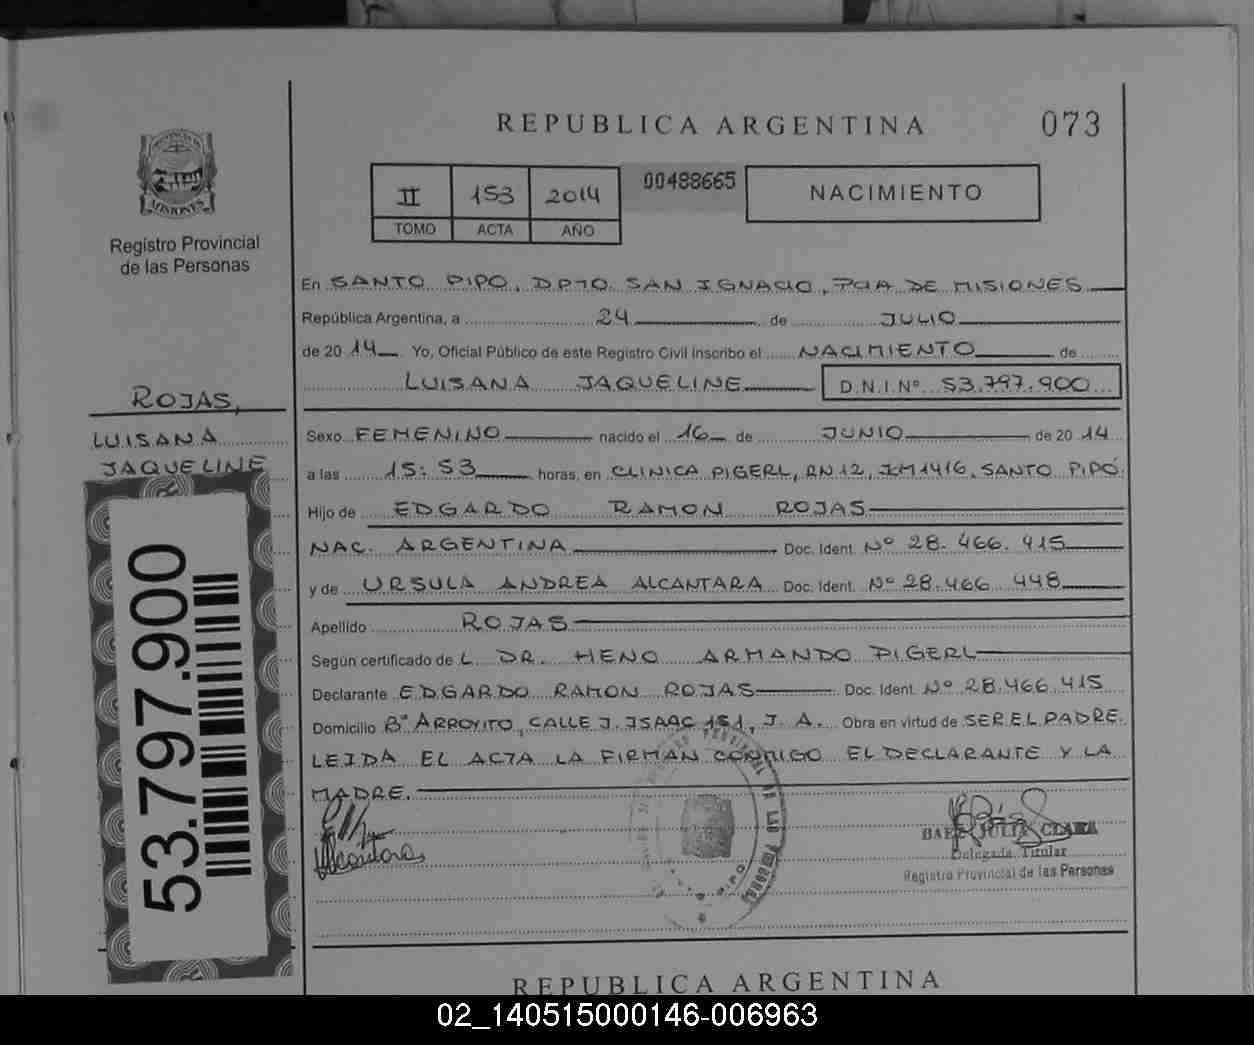 REPUBLICA ARGENTINA
073
PROVINCIA DE
MISIONES
Registro Provincial
de las Personas
II 153 2014
TOMO ACTA AÑO
00488665
NACIMIENTO
En SANTO PIPO, DPTO. SAN IGNACIO, PCIA DE MISIONES
República Argentina, a 24 de JULIO
de 20 14 Yo, Oficial Público de este Registro Civil inscribo el NACIMIENTO de
LUISANA JAQUELINE D.N.I.Nº 53.797.900
ROJAS,
LUISANA
JAQUELINE
53.797.900
Sexo FEMENINO nacido el 16 de JUNIO de 20 14
a las 15:53 horas, en CLINICA PIGERL, RN 12, KM1416, SANTO PIPÓ.
Hijo de EDGARDO RAMON ROJAS
NAC. ARGENTINA Doc. Ident. Nº 28.466.415
y de URSULA ANDREA ALCANTARA Doc. Ident. Nº 28.466.448
Apellido ROJAS
Según certificado de L DR. HENO ARMANDO PIGERL
Declarante EDGARDO RAMON ROJAS Doc. Ident. Nº 28.466.415
Domicilio Bº ARROYITO, CALLE J. ISAAC 151, J. A. Obra en virtud de SER EL PADRE.
LEIDA EL ACTA LA FIRMAN CONMIGO EL DECLARANTE Y LA
MADRE.
Alcantara
BAEZ JULIA CLARA
Delegada Titular
Registro Provincial de las Personas
REPUBLICA ARGENTINA
02_140515000146-006963